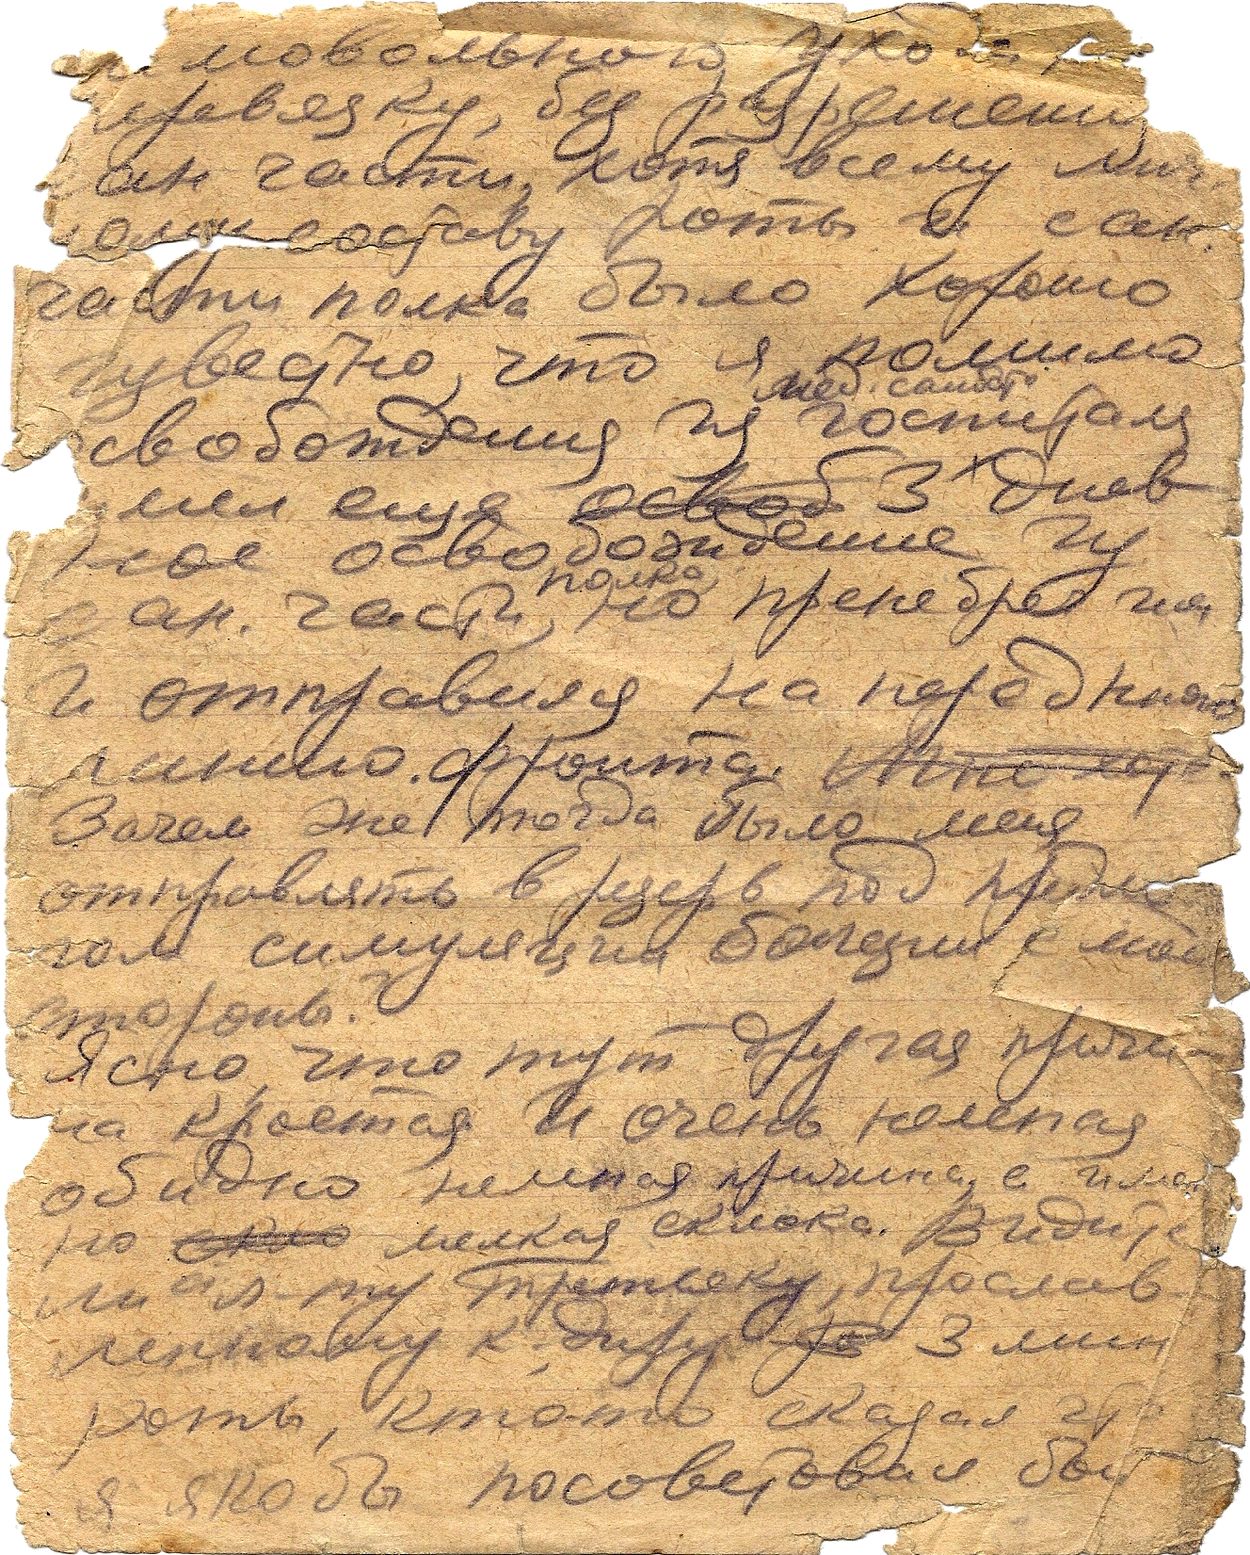 мовольного ухода
перевязку, без разрешения
сан части, хотя всему лич-
ному составу роты и сан.
части полка было хорошо
известно, что я помимо
мед. санбат
освобождения из госпиталя
имел еще освоб 3х днев
ное освобождение из
полка
сан. части, но пренебрег им
и отправился на переднюю
линию. фронта.
Зачем же тогда было меня
отправлять в резерв под предло
гом симуляции болезни с моей
стороны?
Ясно, что тут другая причи-
на простая и очень нелепая
обидно нелепая причина, а имен
но мелкая склока. Видите
ли л-ту Третьяку, прослав-
ленному к-диру 3 мин
роты, кто-то сказал что
я якобы посоветовал бой